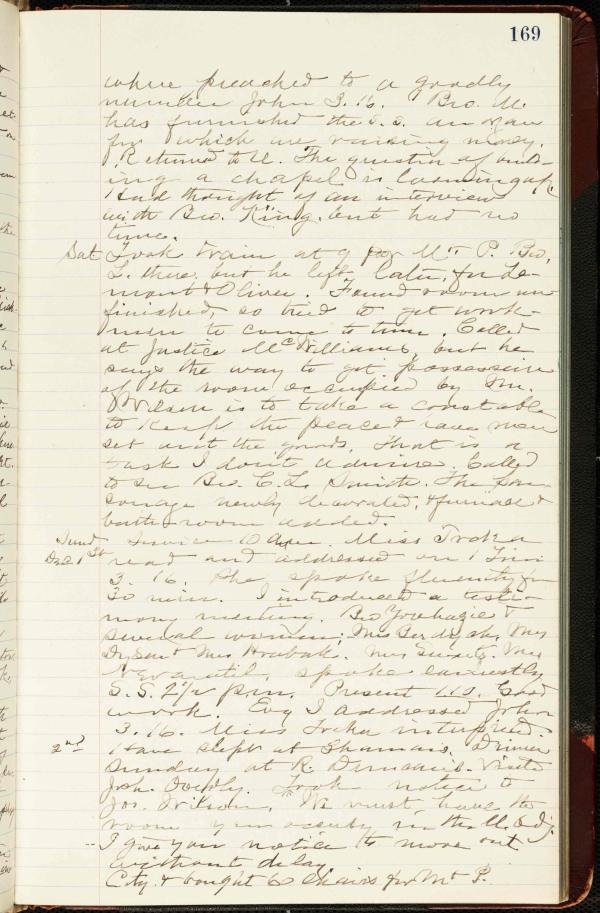 169
where preached to a goodly
number John 3.16. Bro. M.
has furnished the S.S. an organ
for which are raising money.
Returned to U. The question of
ing a chapel is looming up.
Had thought of an interview
with Bro. King, but had no
time.
Sat Took train at 9 for Mt P. Bro.
L. there, but he left later, for Le-
mont & Oliver. Found room un
finished, so tried to get work-
men to come to time. Called
at Justice McWilliams, but he
says the way to get possession
of the room occupied by Mr.
Wilson is to take a constable
to keep the peace & have men
set out the goods. That is a
task I don't admire. Called
to see Bro. C. L. Smith. The par-
sonage newly decorated, & furnace &
bath room added.
Sund Service 10 am. Miss Trcka
Dec 1st read and addressed on 1 Tim
3.16. She spoke fluently for
30 min. I introduced a testi-
mony meeting. Bro &
several women, Mrs
Mrs Hrabak. Mrs
spoke earnestly
S.S. 2 1/2 pm. Present 110. Good
work. Evg I addressed John
3.16. Miss Trcka interpreted.
2nd Have slept at Shamans. Dinner
Sunday at R. Visits
Took notice to
Jos. Wilson. We must have the
room you occupy in the
-- I give you notice to move out
without delay
City & bought 6 chairs for Mt P.